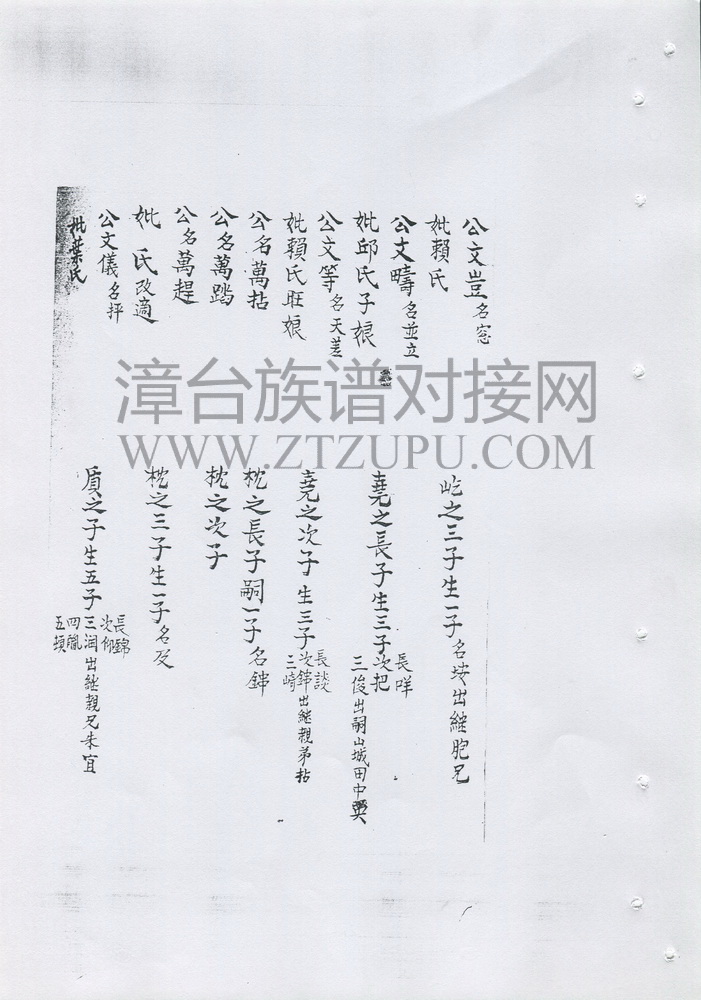 公文豈名窓
妣賴氏
屹之三子生一子名埃出繼胞兄
公文疇名並立
妣邱氏子娘
堯之長子生三子長咩次把三俊出嗣山城田中
公文等名天差
妣賴氏旺娘
堯之次子生三子長談次錦三崎出繼親弟拈
公名萬拈
枕之長子嗣一子名錦
公名萬踏
枕之次子
公名萬趕
妣 氏改適
枕之三子生一子名
公文儀名抨
妣葉氏
質之子生五子長錦次仰三潤四五出繼親兄朱宜
漳台族谱对接网
WWW.ZTZUPU.COM